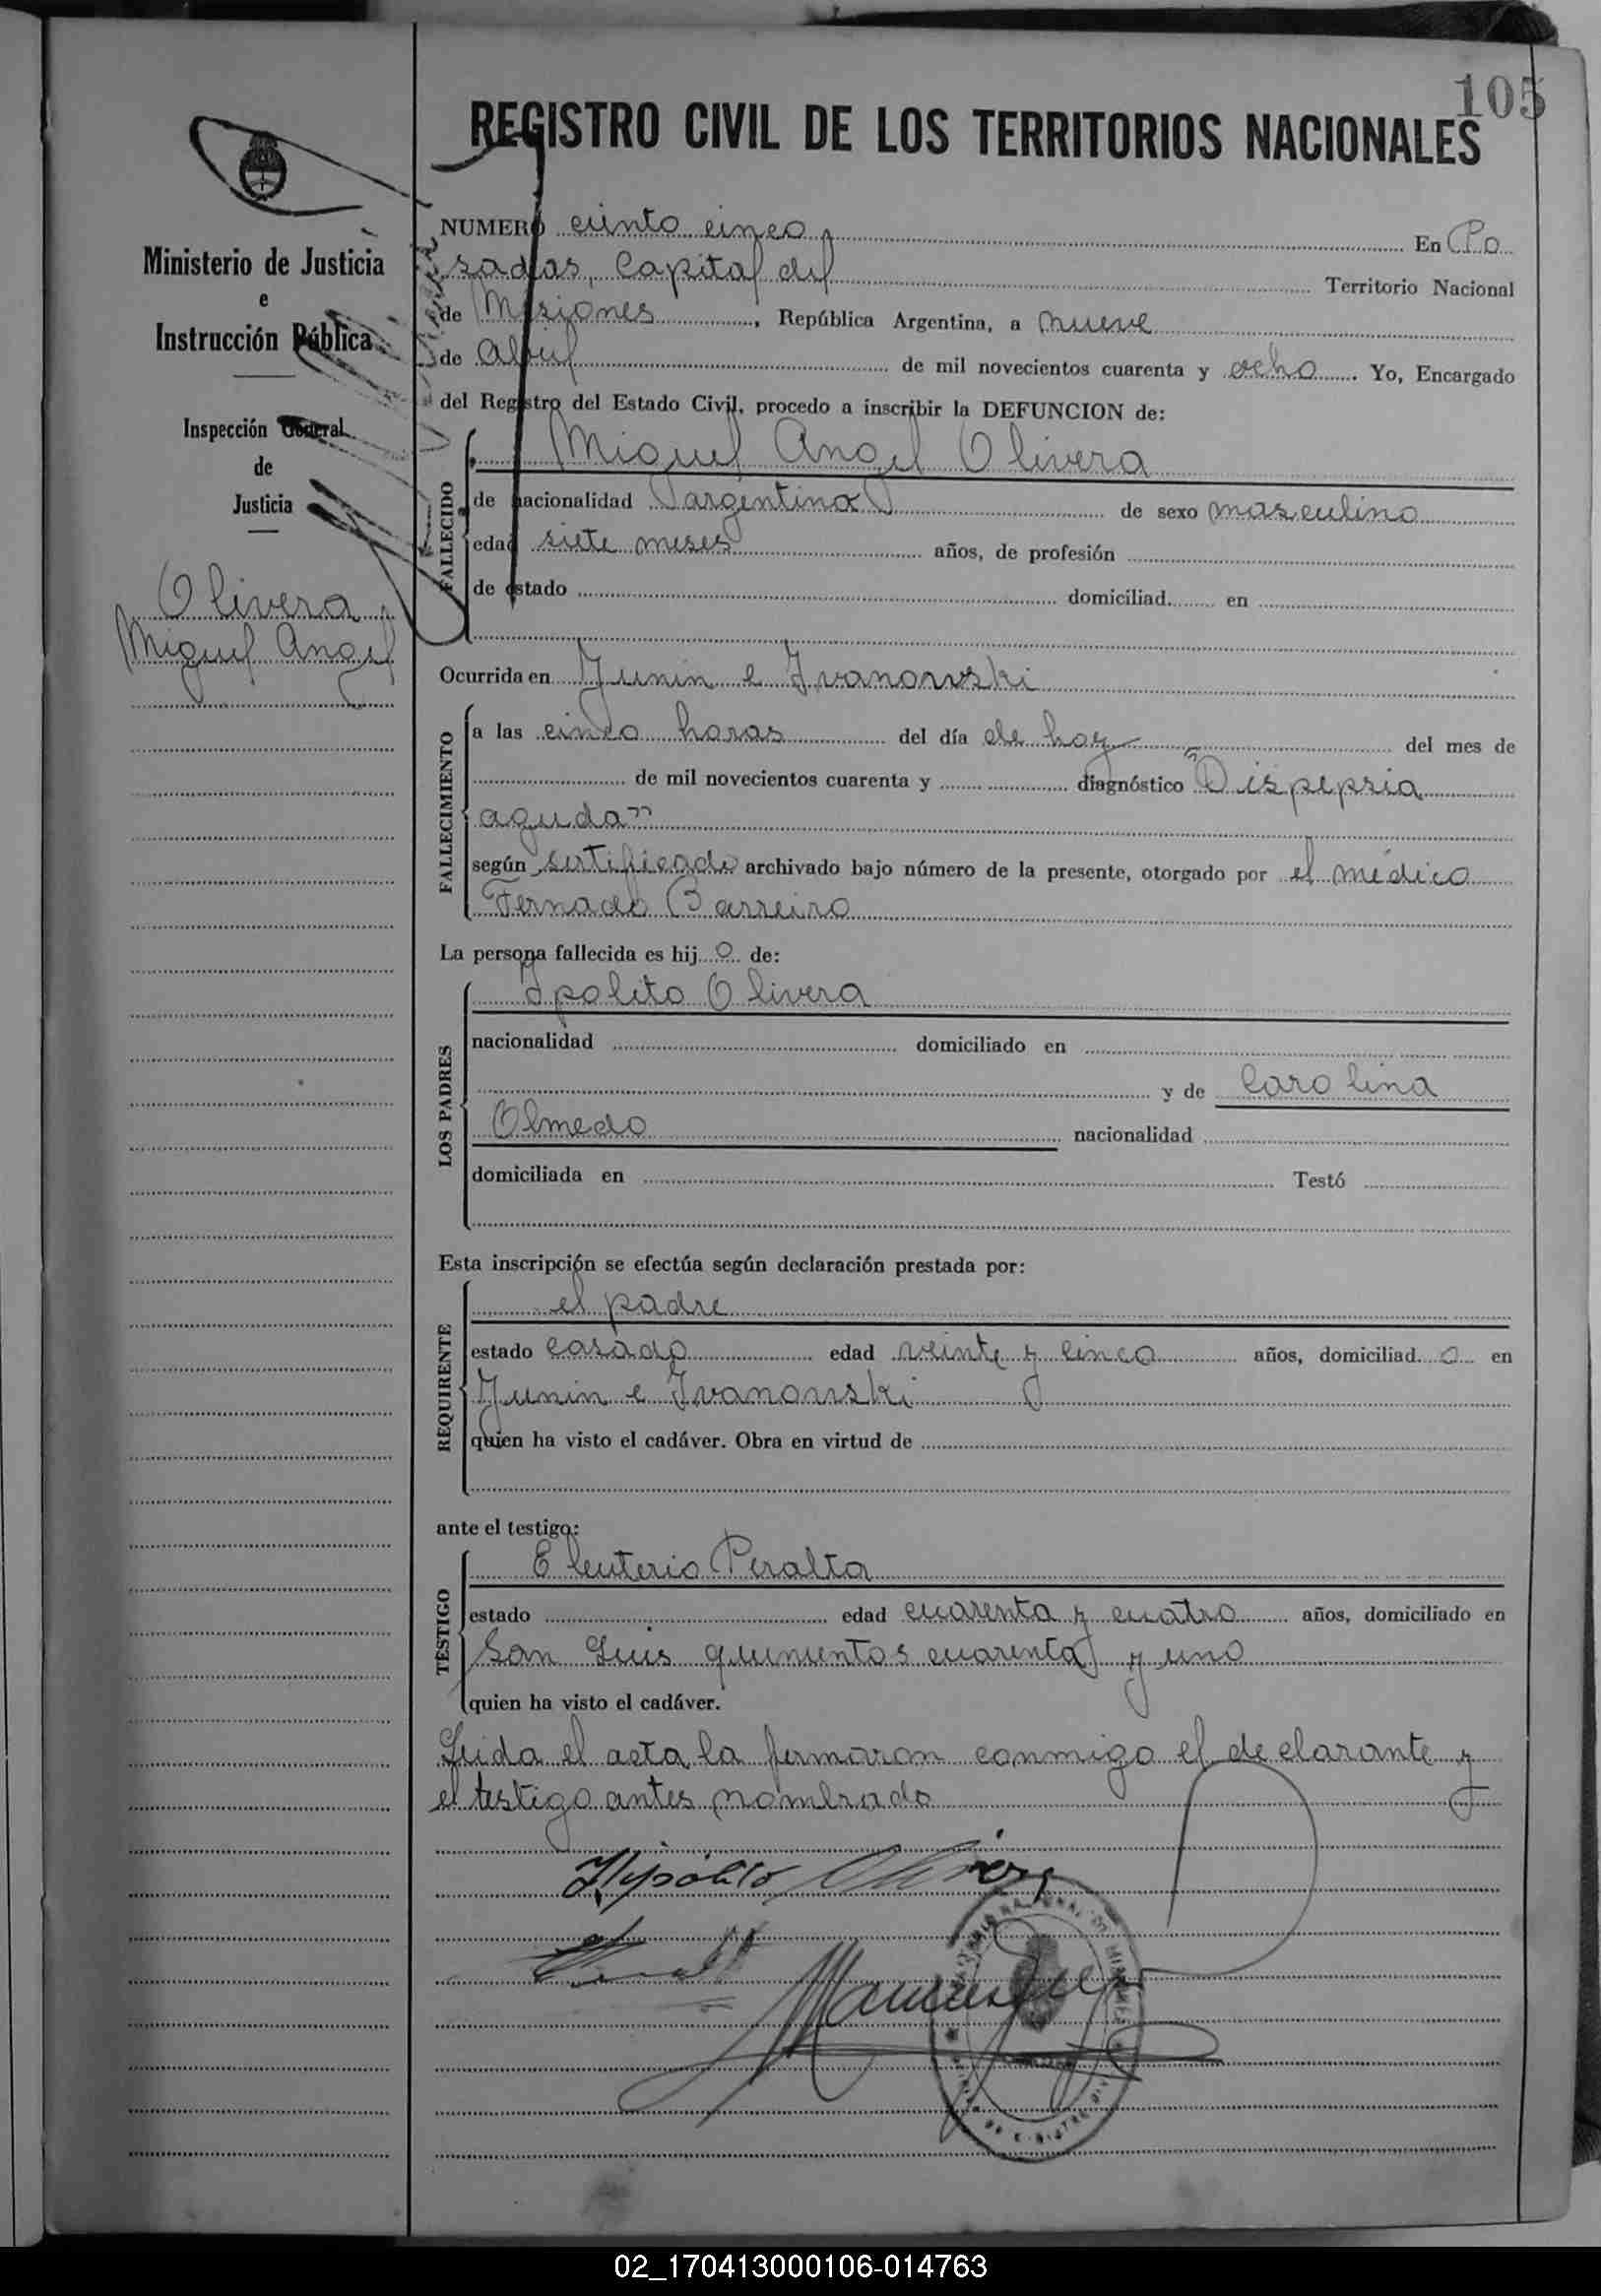 105
REGISTRO CIVIL DE LOS TERRITORIOS NACIONALES
Ministerio de Justicia
e
Instrucción Pública
Inspección General
de
Justicia
Olivera
Miguel Angel
NUMERO ciento cinco En Po
sadas, Capital del Territorio Nacional
de Misiones, República Argentina, a nueve
de Abril de mil novecientos cuarenta y ocho. Yo, Encargado
del Registro del Estado Civil, procedo a inscribir la DEFUNCION de:
FALLECIDO
Miguel Angel Olivera
de nacionalidad argentina de sexo masculino
edad siete meses años, de profesión
de estado domiciliad en
Ocurrida en Junin e Ivanowski
FALLECIMIENTO
a las cinco horas del día de hoy del mes de
de mil novecientos cuarenta y diagnóstico "Dispepsia
aguda"
según sertificado archivado bajo número de la presente, otorgado por el médico
Fernado Barreiro
La persona fallecida es hijo de:
LOS PADRES
Ipolito Olivera
nacionalidad domiciliado en
y de Carolina
Olmedo nacionalidad
domiciliada en Testó
Esta inscripción se efectúa según declaración prestada por:
REQUIRENTE
el padre
estado casado edad veinte y cinco años, domiciliado en
Junin e Ivanowski
quien ha visto el cadáver. Obra en virtud de
ante el testigo:
TESTIGO
Eleuterio Peralta
estado edad cuarenta y cuatro años, domiciliado en
San Luis quinientos cuarenta y uno
quien ha visto el cadáver.
Leida el acta la firmaron conmigo el declarante y
el testigo antes nombrado
Hypólito Olivera
02_170413000106-014763